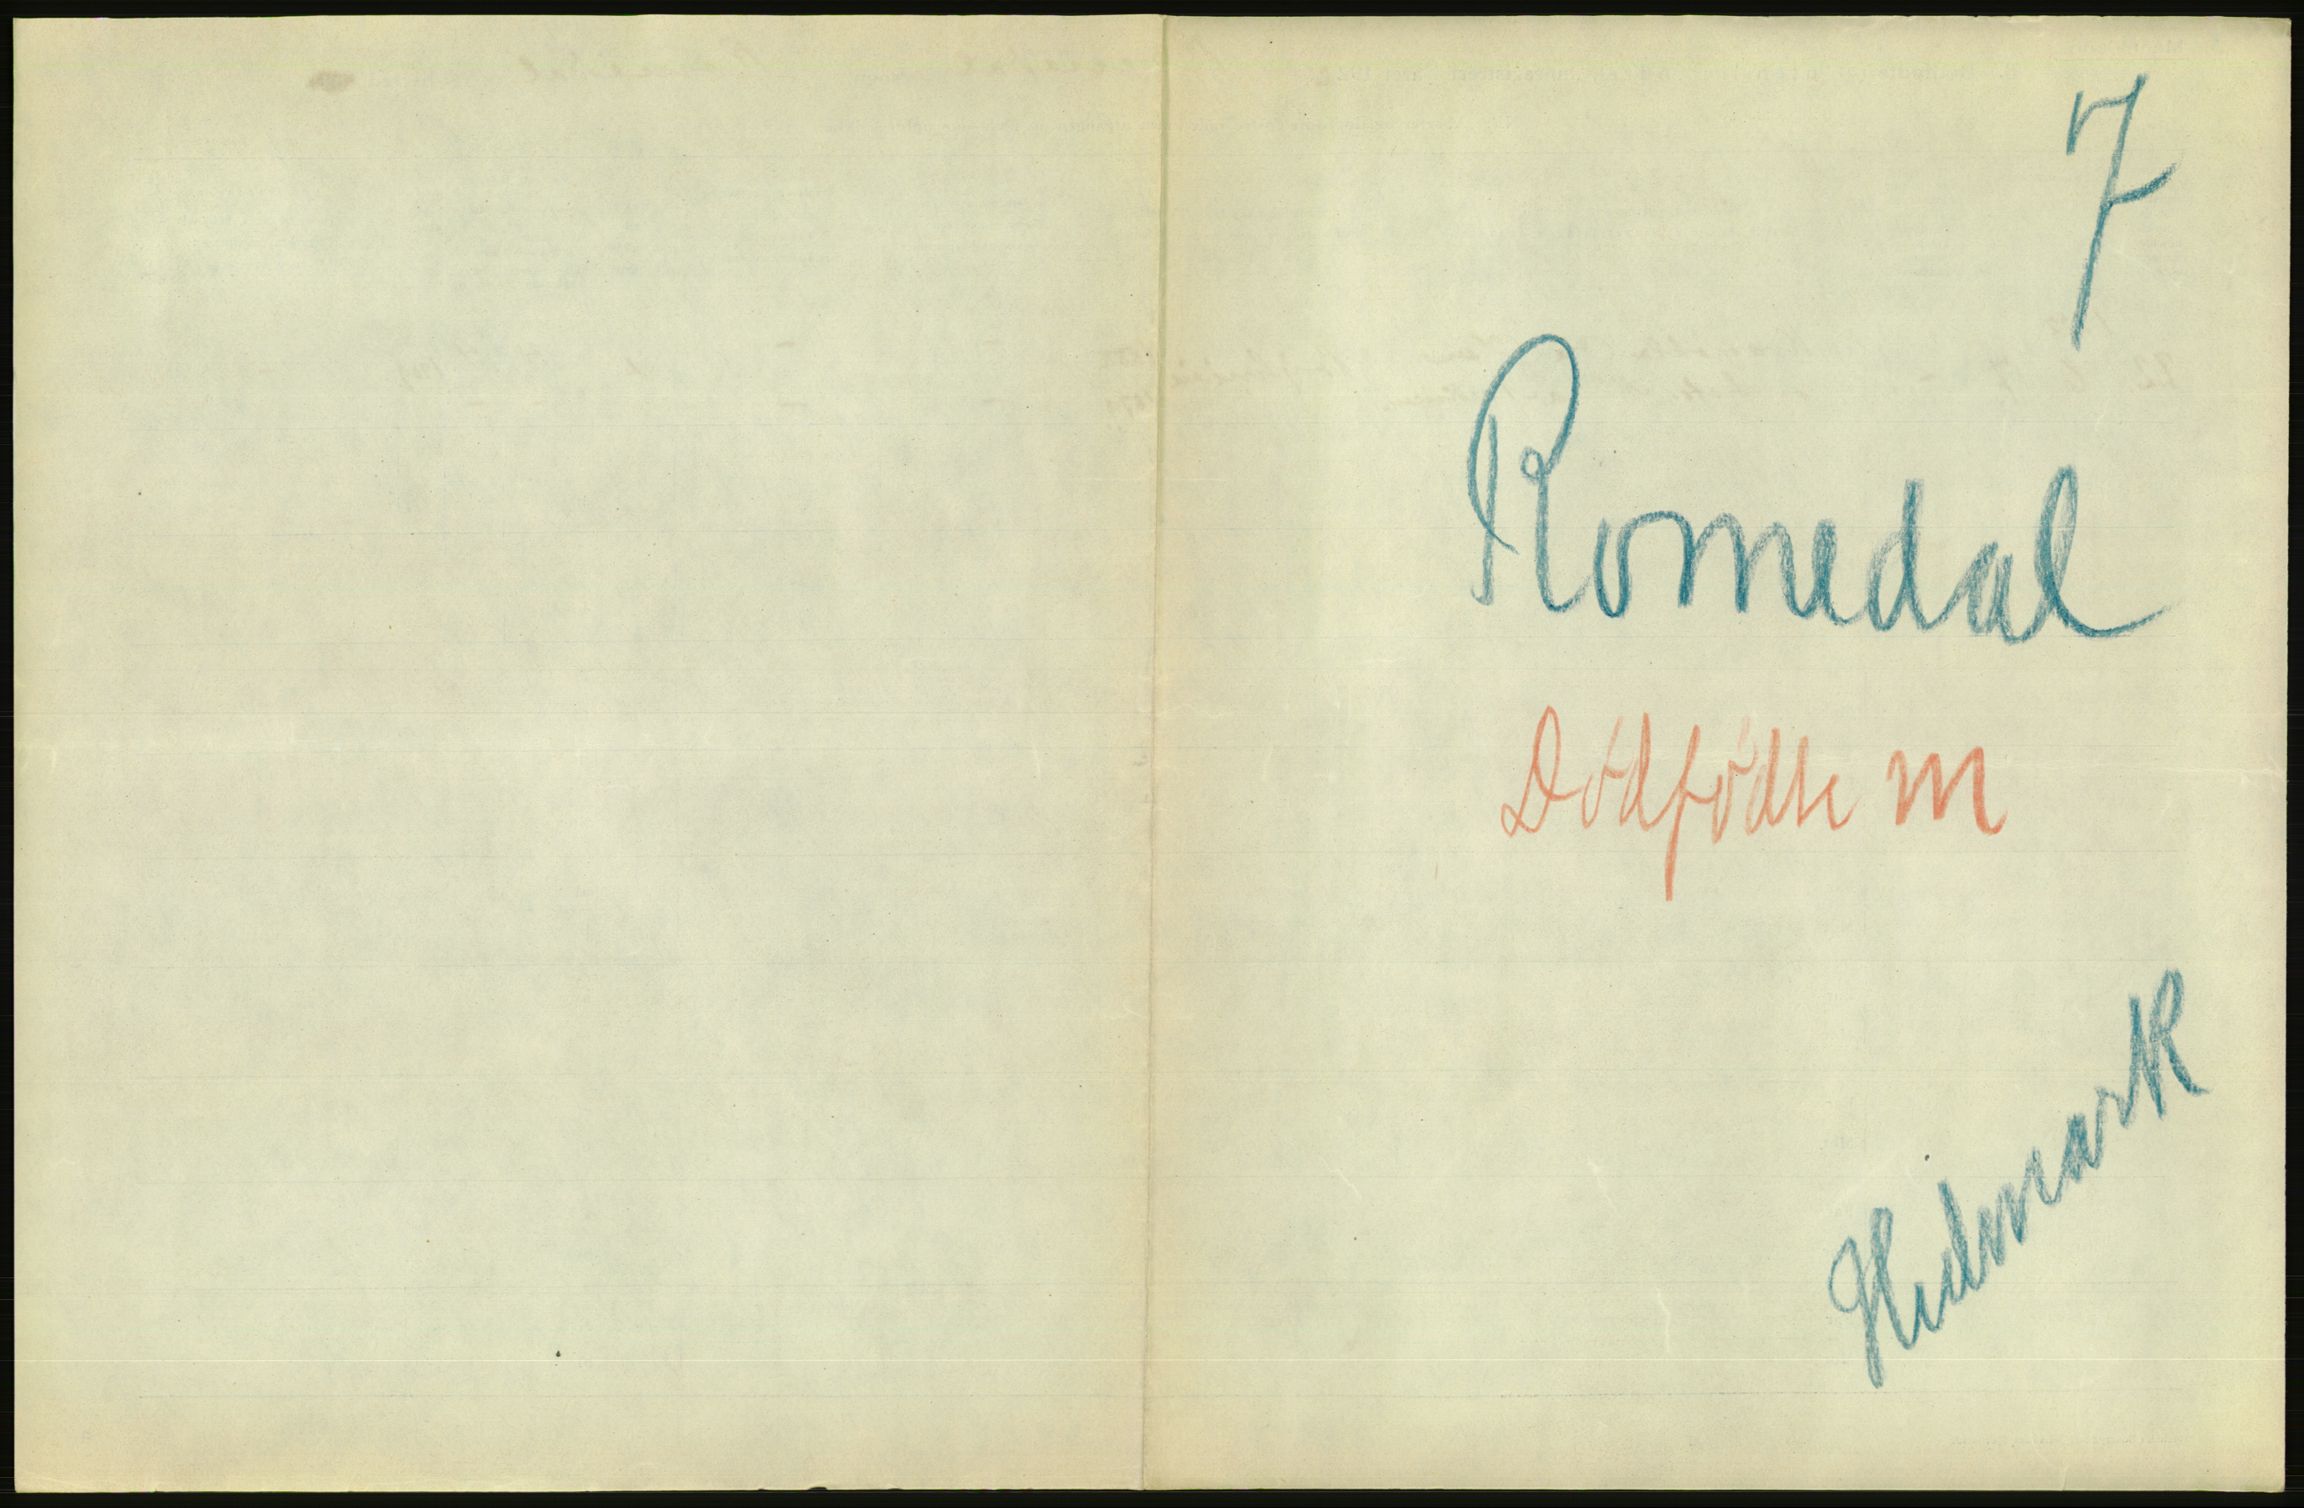 7
Romedal
Dödfödte m
Hedmark